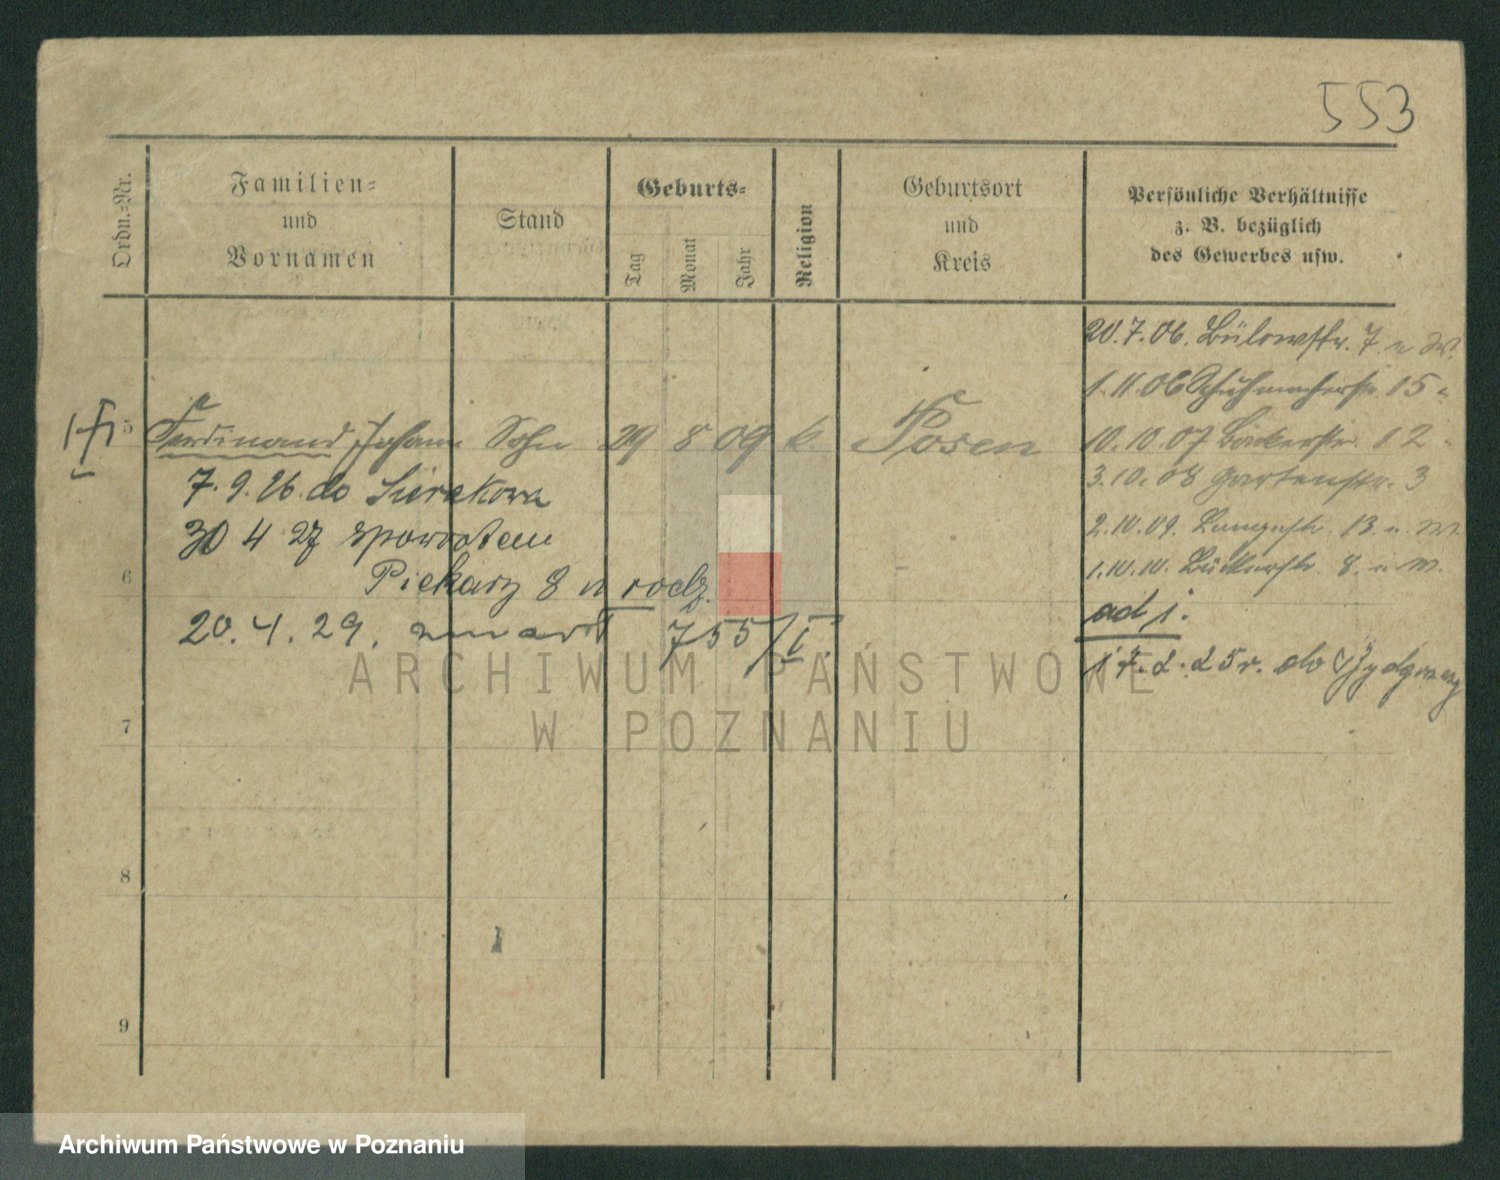 553
Ordn.-Nr.
Familien-
und
Vornamen
Stand
Geburts-
Tag
Monat
Jahr
Religion
Geburtsort
und
Kreis
Persönliche Verhältnisse
z. B. bezüglich
des Gewerbes usw.
20.7.06. Bülowstr. 7
1.11.06 Schuhmacherstr. 15
5 Ferdinand Johann Sohn 29 8 09 k. Posen
10.10.07 Bäckerstr. 12
7.9.26. do Sierakowa
3.10.08 Gartenstr. 3
30 4 27 zpowrotem
2.10.09. Langestr. 13
6
Piekary 8 u rodz.
1.10.10. Bäckerstr. 8.
20.4.29. zmarł 755/I
ad 1.
17.2.25r. do Bydgoszczy
ARCHIWUM PAŃSTWOWE
W POZNANIU
7
8
9
Archiwum Państwowe w Poznaniu